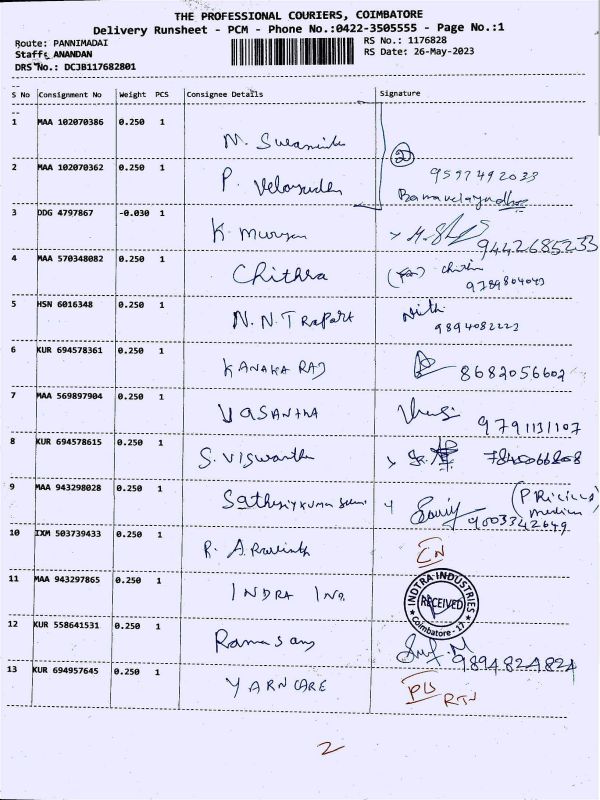 THE PROFESSIONAL COURIERS, COIMBATORE
Delivery Runsheet - PCM - Phone No.:0422-3505555 - Page No.:1
Route: PANNIMADAI RS No.: 1176828
Staff: ANANDAN RS Date: 26-May-2023
DRS No.: DCJB117682801
S No Consignment No Weight PCS Consignee Details Signature
1 MAA 102070386 0.250 1 M.
2 MAA 102070362 0.250 1 P. Velayudhan 9597492033
3 DDG 4797867 -0.030 1 K Murugan 9442685233
4 MAA 570348082 0.250 1 Chithra 9789804043
5 HSN 6016348 0.250 1 N.N.Traport 9894082223
6 KUR 694578361 0.250 1 KANAKA RAJ 8682056602
7 MAA 569897904 0.250 1 VASANTHA 9791131107
8 KUR 694578615 0.250 1 S. Viswanth
9 MAA 943298028 0.250 1 9003342649
10 IXM 503739433 0.250 1 R. Aravinth
11 MAA 943297865 0.250 1 INDRA IND. INDTRA INDUSTRIES RECEIVED Coimbatore - 17
12 KUR 558641531 0.250 1 Ramasamy 9894824824
13 KUR 694957645 0.250 1 YARN CARE RTN
2